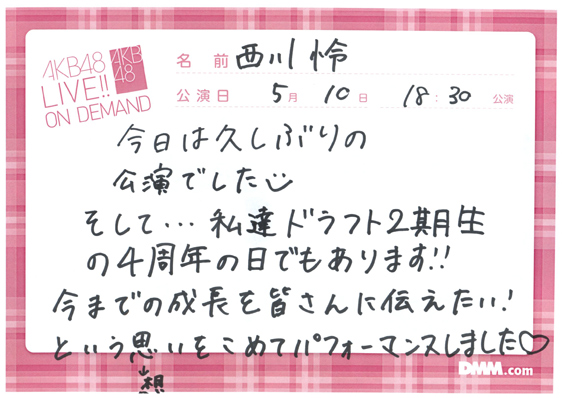 AKB48
LIVE!!
ON DEMAND
AKB
48
名 前 西川 怜
公演日 5月 10日 18:30 公演
今日は久しぶりの
公演でした
そして…私達ドラフト2期生
の4周年の日でもあります!!
今までの成長を皆さんに伝えたい!
という思いをこめてパフォーマンスしました♡
↓
想
DMM.com